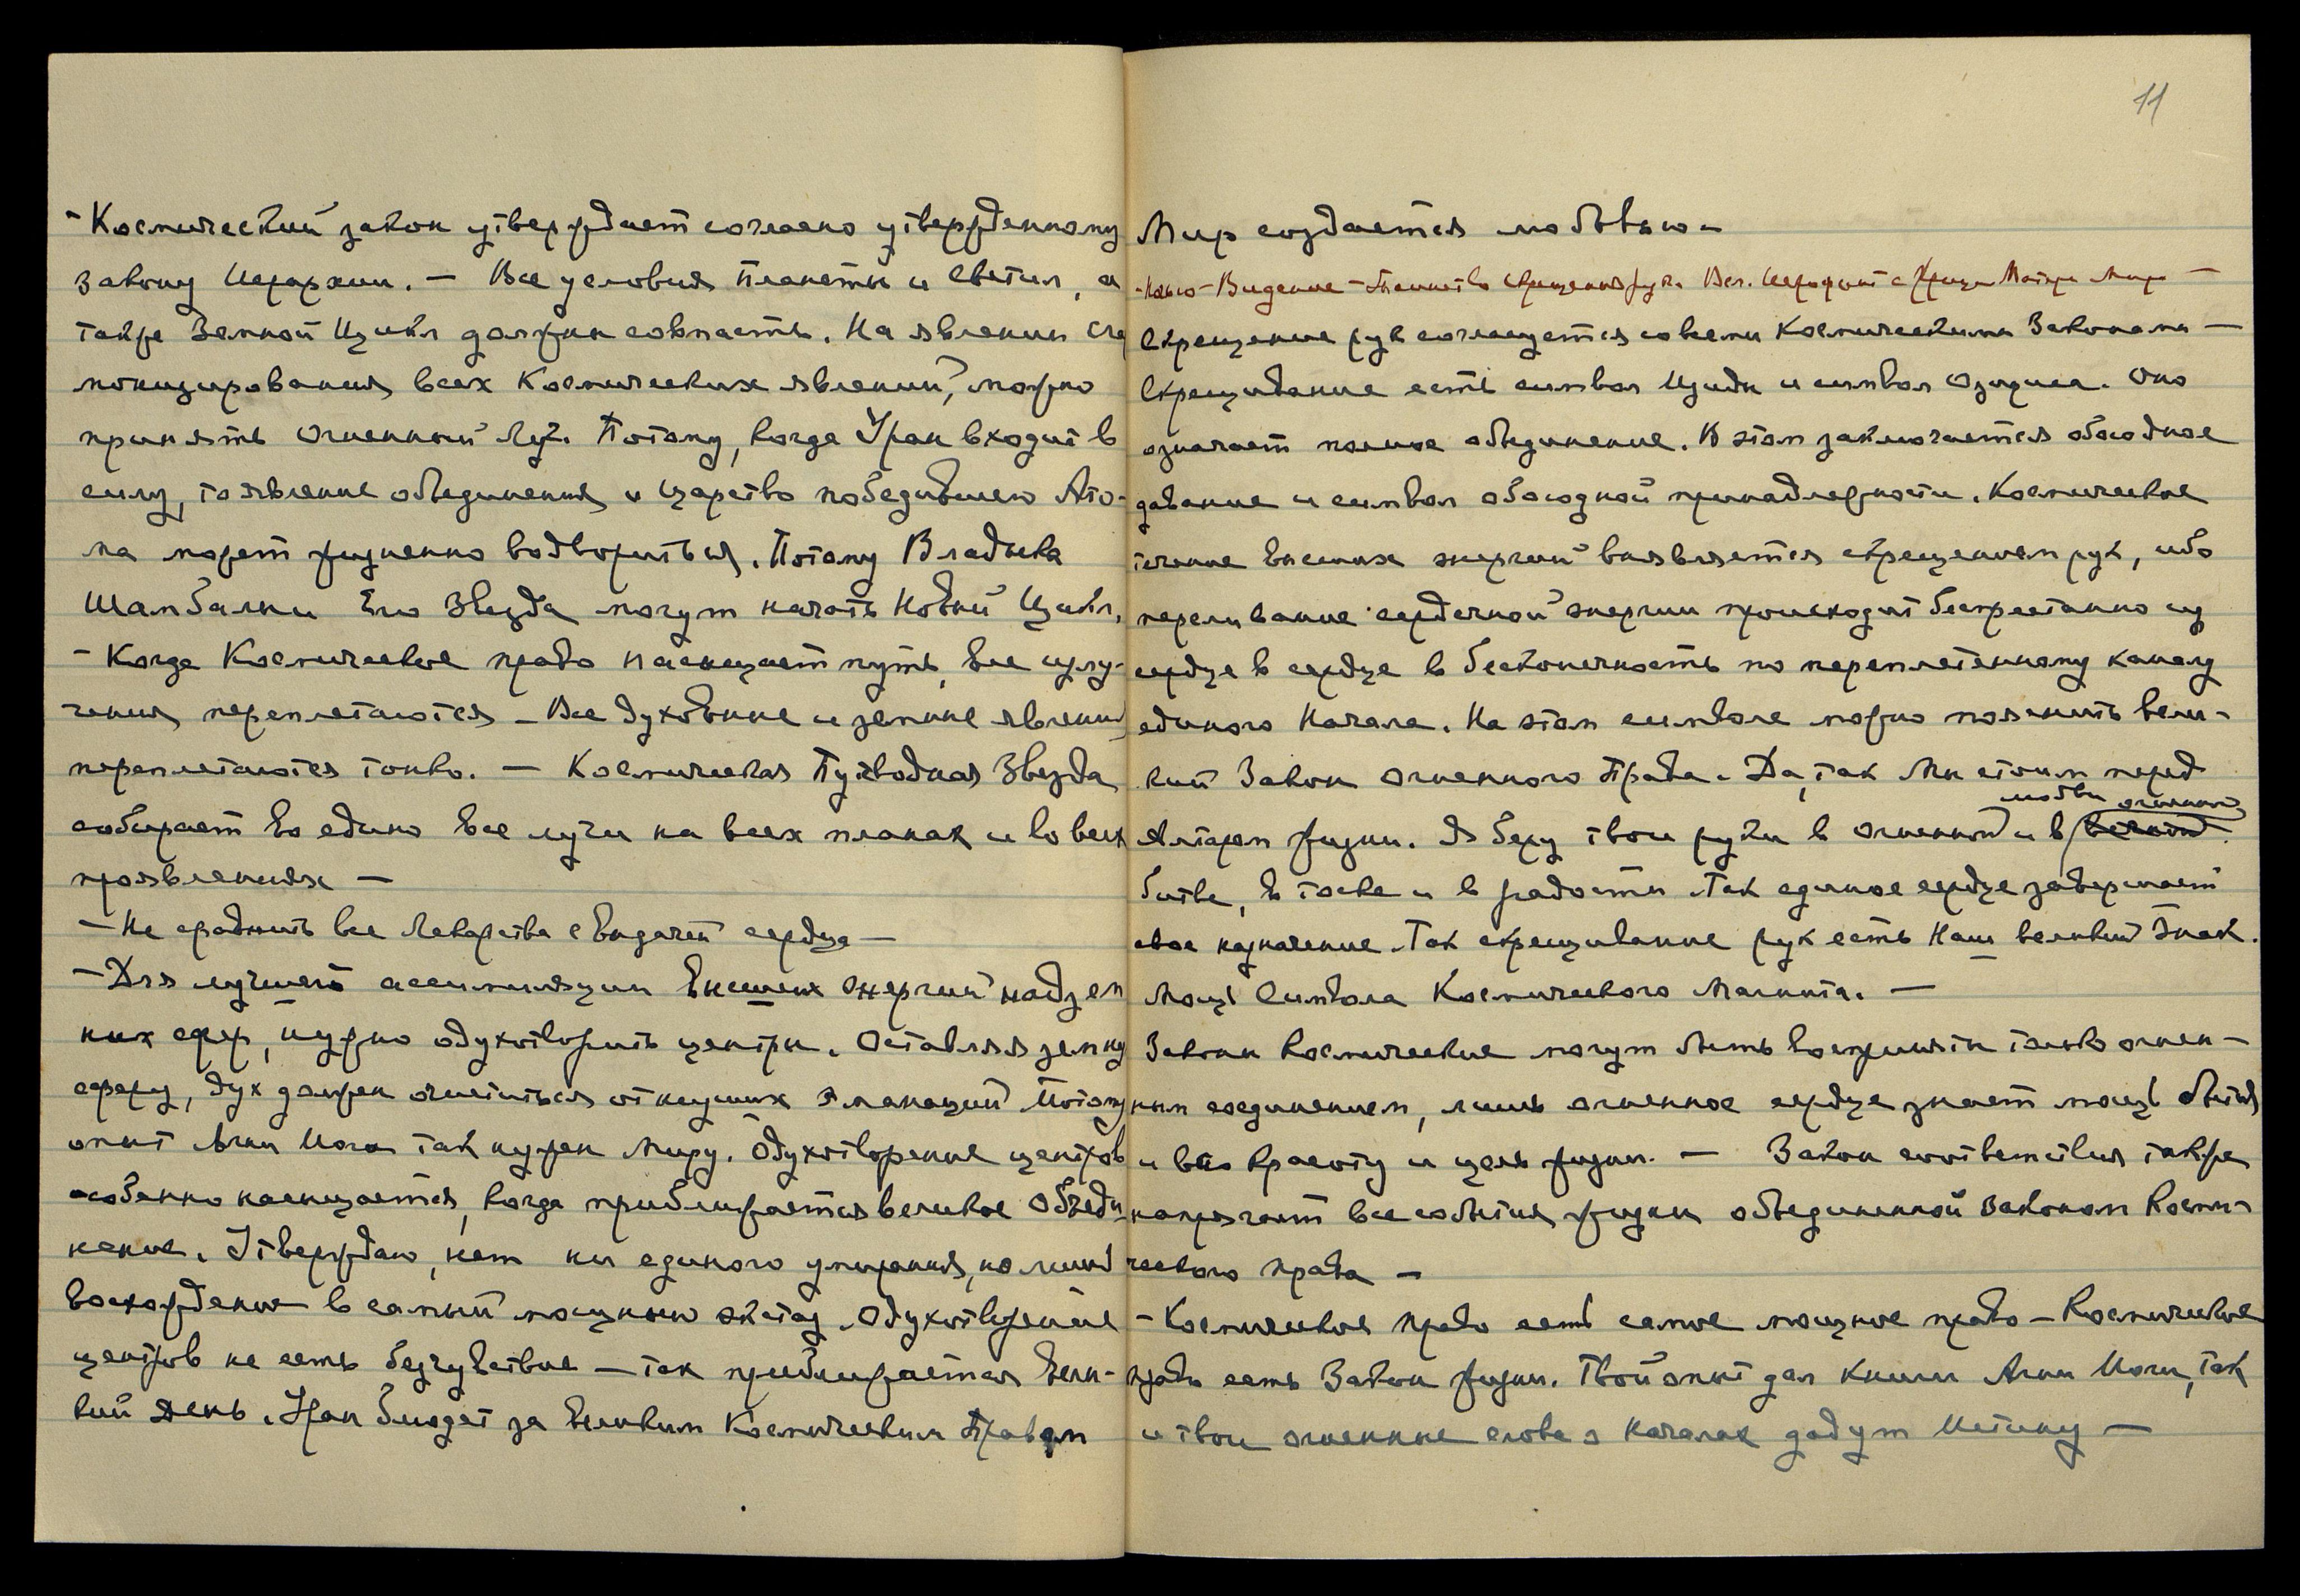 - Космический закон утверждает согласно утвержденному
закону Иерархии. — Все условия планеты и светил, а
также Земной Цикл должны совпасть. На явлении
всех Космических явлений, можно
принять огненный Луч. Потому, когда Уран входит в
силу, то явление объединения и царство победившего Ато-
ма может жизненно водвориться. Потому Владыка
Шамбалы и Его Звезда могут начать Новый Цикл.
- Когда Космическое право насыщает путь, все излу-
чения переплетаются — Все духовные и земные явления
переплетаются тонко. — Космическая Путеводная Звезда
собирает во едино все лучи на всех планах и во всех
проявлениях —
— Не сравнить все лекарства с выдачей сердца —
— Для лучшей ассимиляции Высших энергий надзем
ных сфер, нужно одухотворить центры. Оставляя земну
сферу, дух должен очиститься от низших эманаций. Потому
опыт Агни Йоги так нужен миру. Одухотворение центров
особенно насыщается, когда приближается великое Объеди-
нение. Утверждаю, нет ни единого умирания, но лишь
восхождение в самый мощный экстаз. Одухотворение
центров не есть безчувствие — так приближается Вели-
кий День. Уран блюдет за Великим Космическим Правом
11
Мир создается любовью —
- Ночью - Видение - Таинство скрещения рук. Вел. Иерофант с Матерь Мира —
Скрещение рук согласуется со всеми Космическими Законами —
Скрещивание есть символ Изиды и символ Озириса. Оно
означает полное объединение. В этом заключается обоюдное
давание и символ обоюдной принадлежности. Космическое
течение высших энергий выявляется скрещением рук, ибо
переливание сердечной энергии происходит беспрестанно из
сердца в сердце в бесконечность по переплетенному каналу
единого Начала. На этом символе можно пояснить вели-
кий Закон Огненного Права. Да, так Мы стоим перед
любви огненной
Алтарем Жизни. Я беру твои руки в огненной и в вечной
битве, в тоске и в радости. Так единое сердце завершает
свое назначение. Так скрещивание рук есть Наш великий Знак.
Мощь Символа Космического Магнита. —
Законы Космические могут быть восприняты только огнен-
ным соединением, лишь огненное сердце знает мощь бытия
и всю красоту и цель жизни. — Закон соответствия также
напрягает все события жизни объединенной Законом Косми-
ческого Права —
- Космическое Право есть самое мощное право — Космическое
право есть Закон жизни. Твой опыт дал книги Агни Йоги, так
и твои огненные слова о Началах дадут Истину —